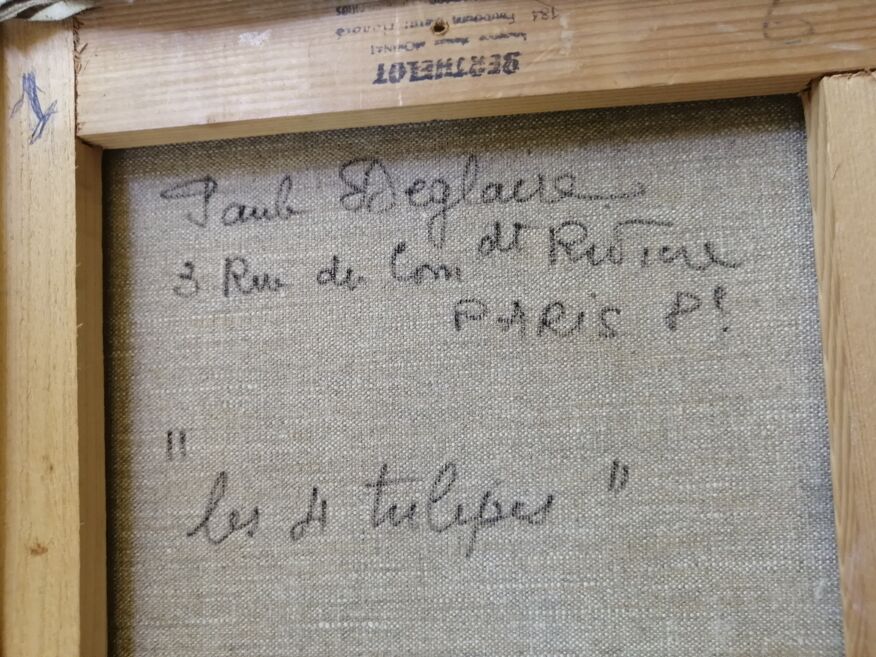 BERTHELOT
184 Faubourg Saint Honoré
Paul Deglaire
3 Rue du Com dt Rivière
PARIS 8e
"
les 4 tulipes "